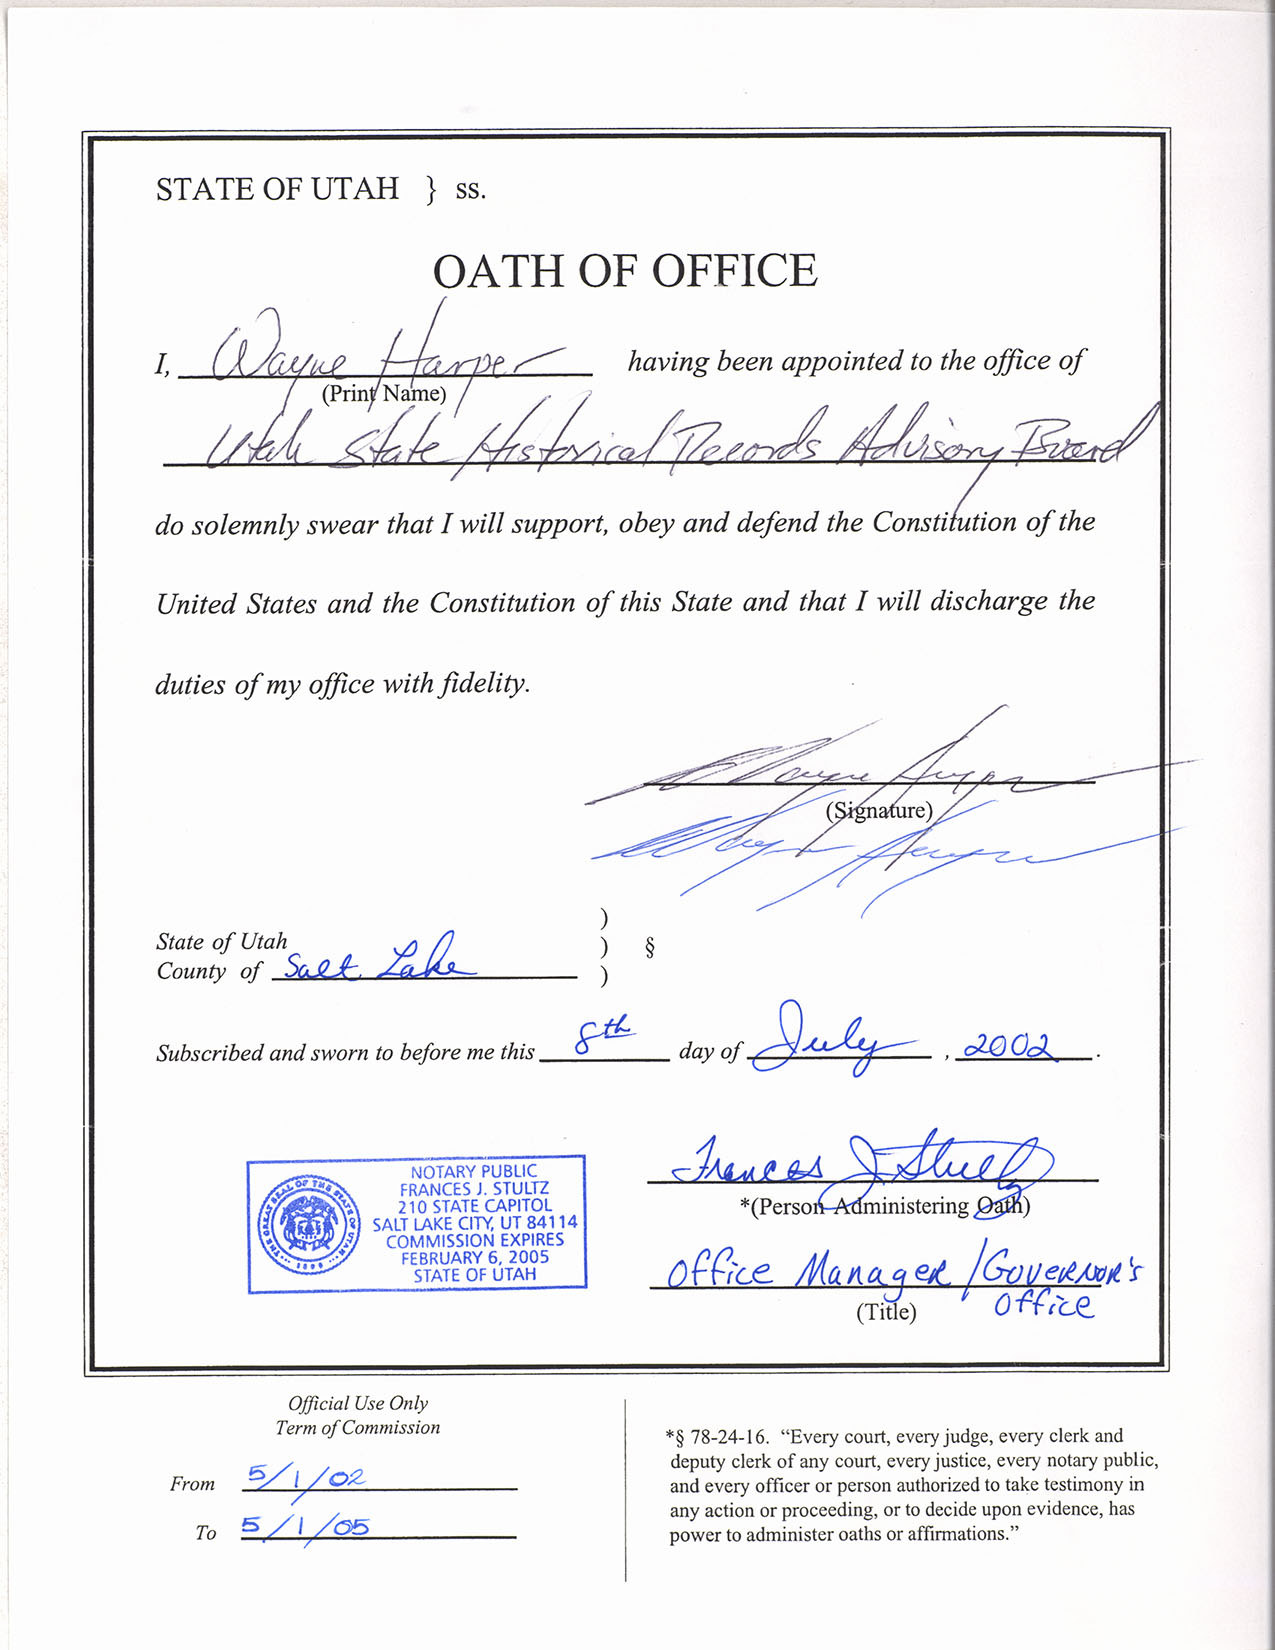 STATE OF UTAH } ss.
OATH OF OFFICE
I, Wayne Harper having been appointed to the office of
(Print Name)
Utah State Historical Records Advisory Board
do solemnly swear that I will support, obey and defend the Constitution of the
United States and the Constitution of this State and that I will discharge the
duties of my office with fidelity.
Wayne Harper
(Signature)
Wayne Harper
)
State of Utah ) §
County of Salt Lake )
Subscribed and sworn to before me this 8th day of July, 2002.
Frances J. Stultz
*(Person Administering Oath)
Office Manager/Governor's
Office
(Title)
THE GREAT SEAL OF THE STATE OF UTAH
1896
NOTARY PUBLIC
FRANCES J. STULTZ
210 STATE CAPITOL
SALT LAKE CITY, UT 84114
COMMISSION EXPIRES
FEBRUARY 6, 2005
STATE OF UTAH
Official Use Only
Term of Commission
From 5/1/02
To 5/1/05
*§ 78-24-16. “Every court, every judge, every clerk and
deputy clerk of any court, every justice, every notary public,
and every officer or person authorized to take testimony in
any action or proceeding, or to decide upon evidence, has
power to administer oaths or affirmations.”